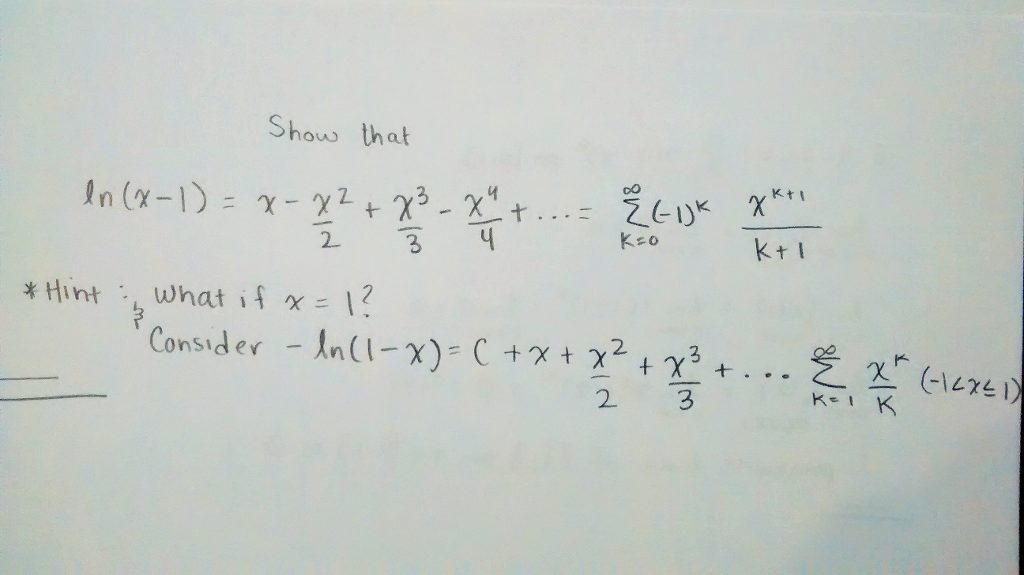 Show that
ln(x-1) = x - x²/2 + x³/3 - x⁴/4 + ... = ∑_{K=0}^{∞} (-1)^K x^{K+1}/(K+1)
*Hint : What if x = 1?
& Consider - ln(1-x) = C + x + x²/2 + x³/3 + ... ∑_{K=1}^{∞} x^K/K (-1<x≤1)